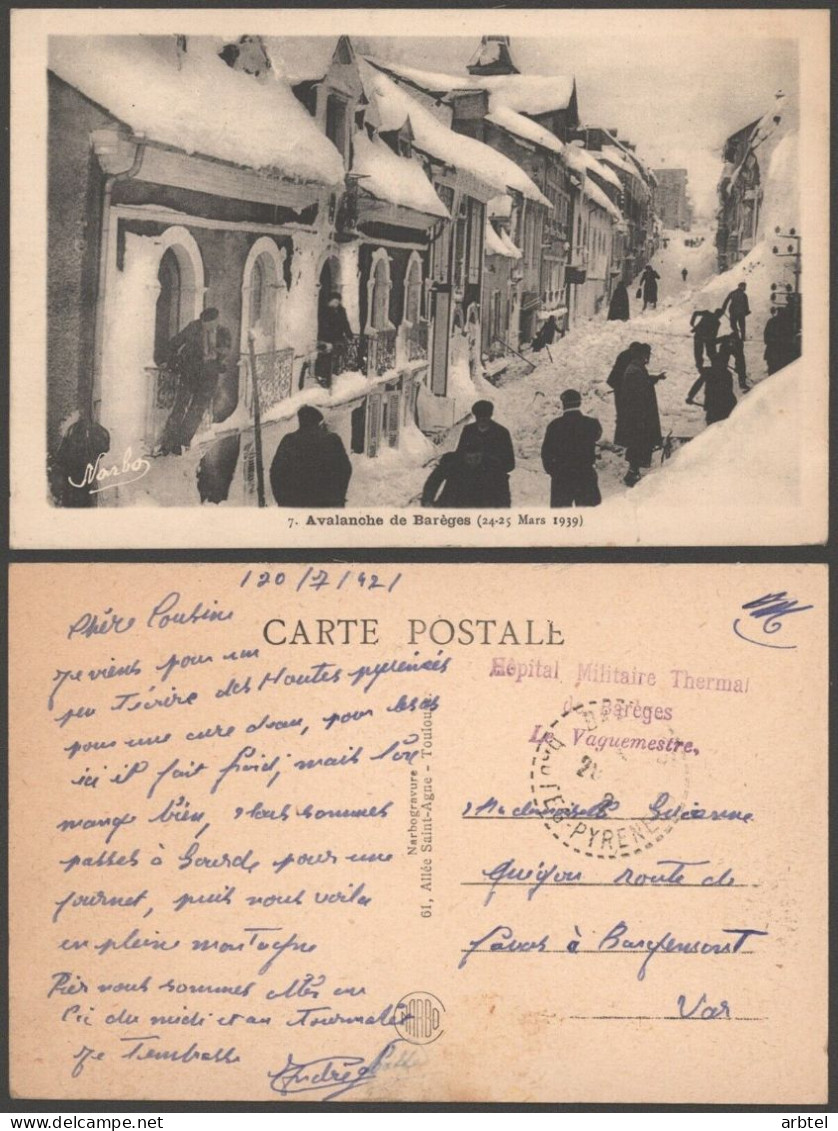 Narbo
7. Avalanche de Barèges (24-25 Mars 1939)
20/7/42
CARTE POSTALE
Chère Cousine
Je viens pour un
peu t'écrire des Hautes pyrénées
pour une cure d'eau, pour
ici il fait froid, mais l'on
mange bien, Nous sommes
passés à Lourde pour une
journet, puis nous voila
en plein montagne
Hier nous sommes allés au
Pic du midi et au Tourmalet
Je T'embrasse
André
Narbogravure
61, Allée Saint-Agne - Toulouse
NARBO
Hôpital Militaire Thermal
de Barèges
Le Vaguemestre,
PYRENE
Mademoiselle
route de
à Bargemont
Var
arbtel